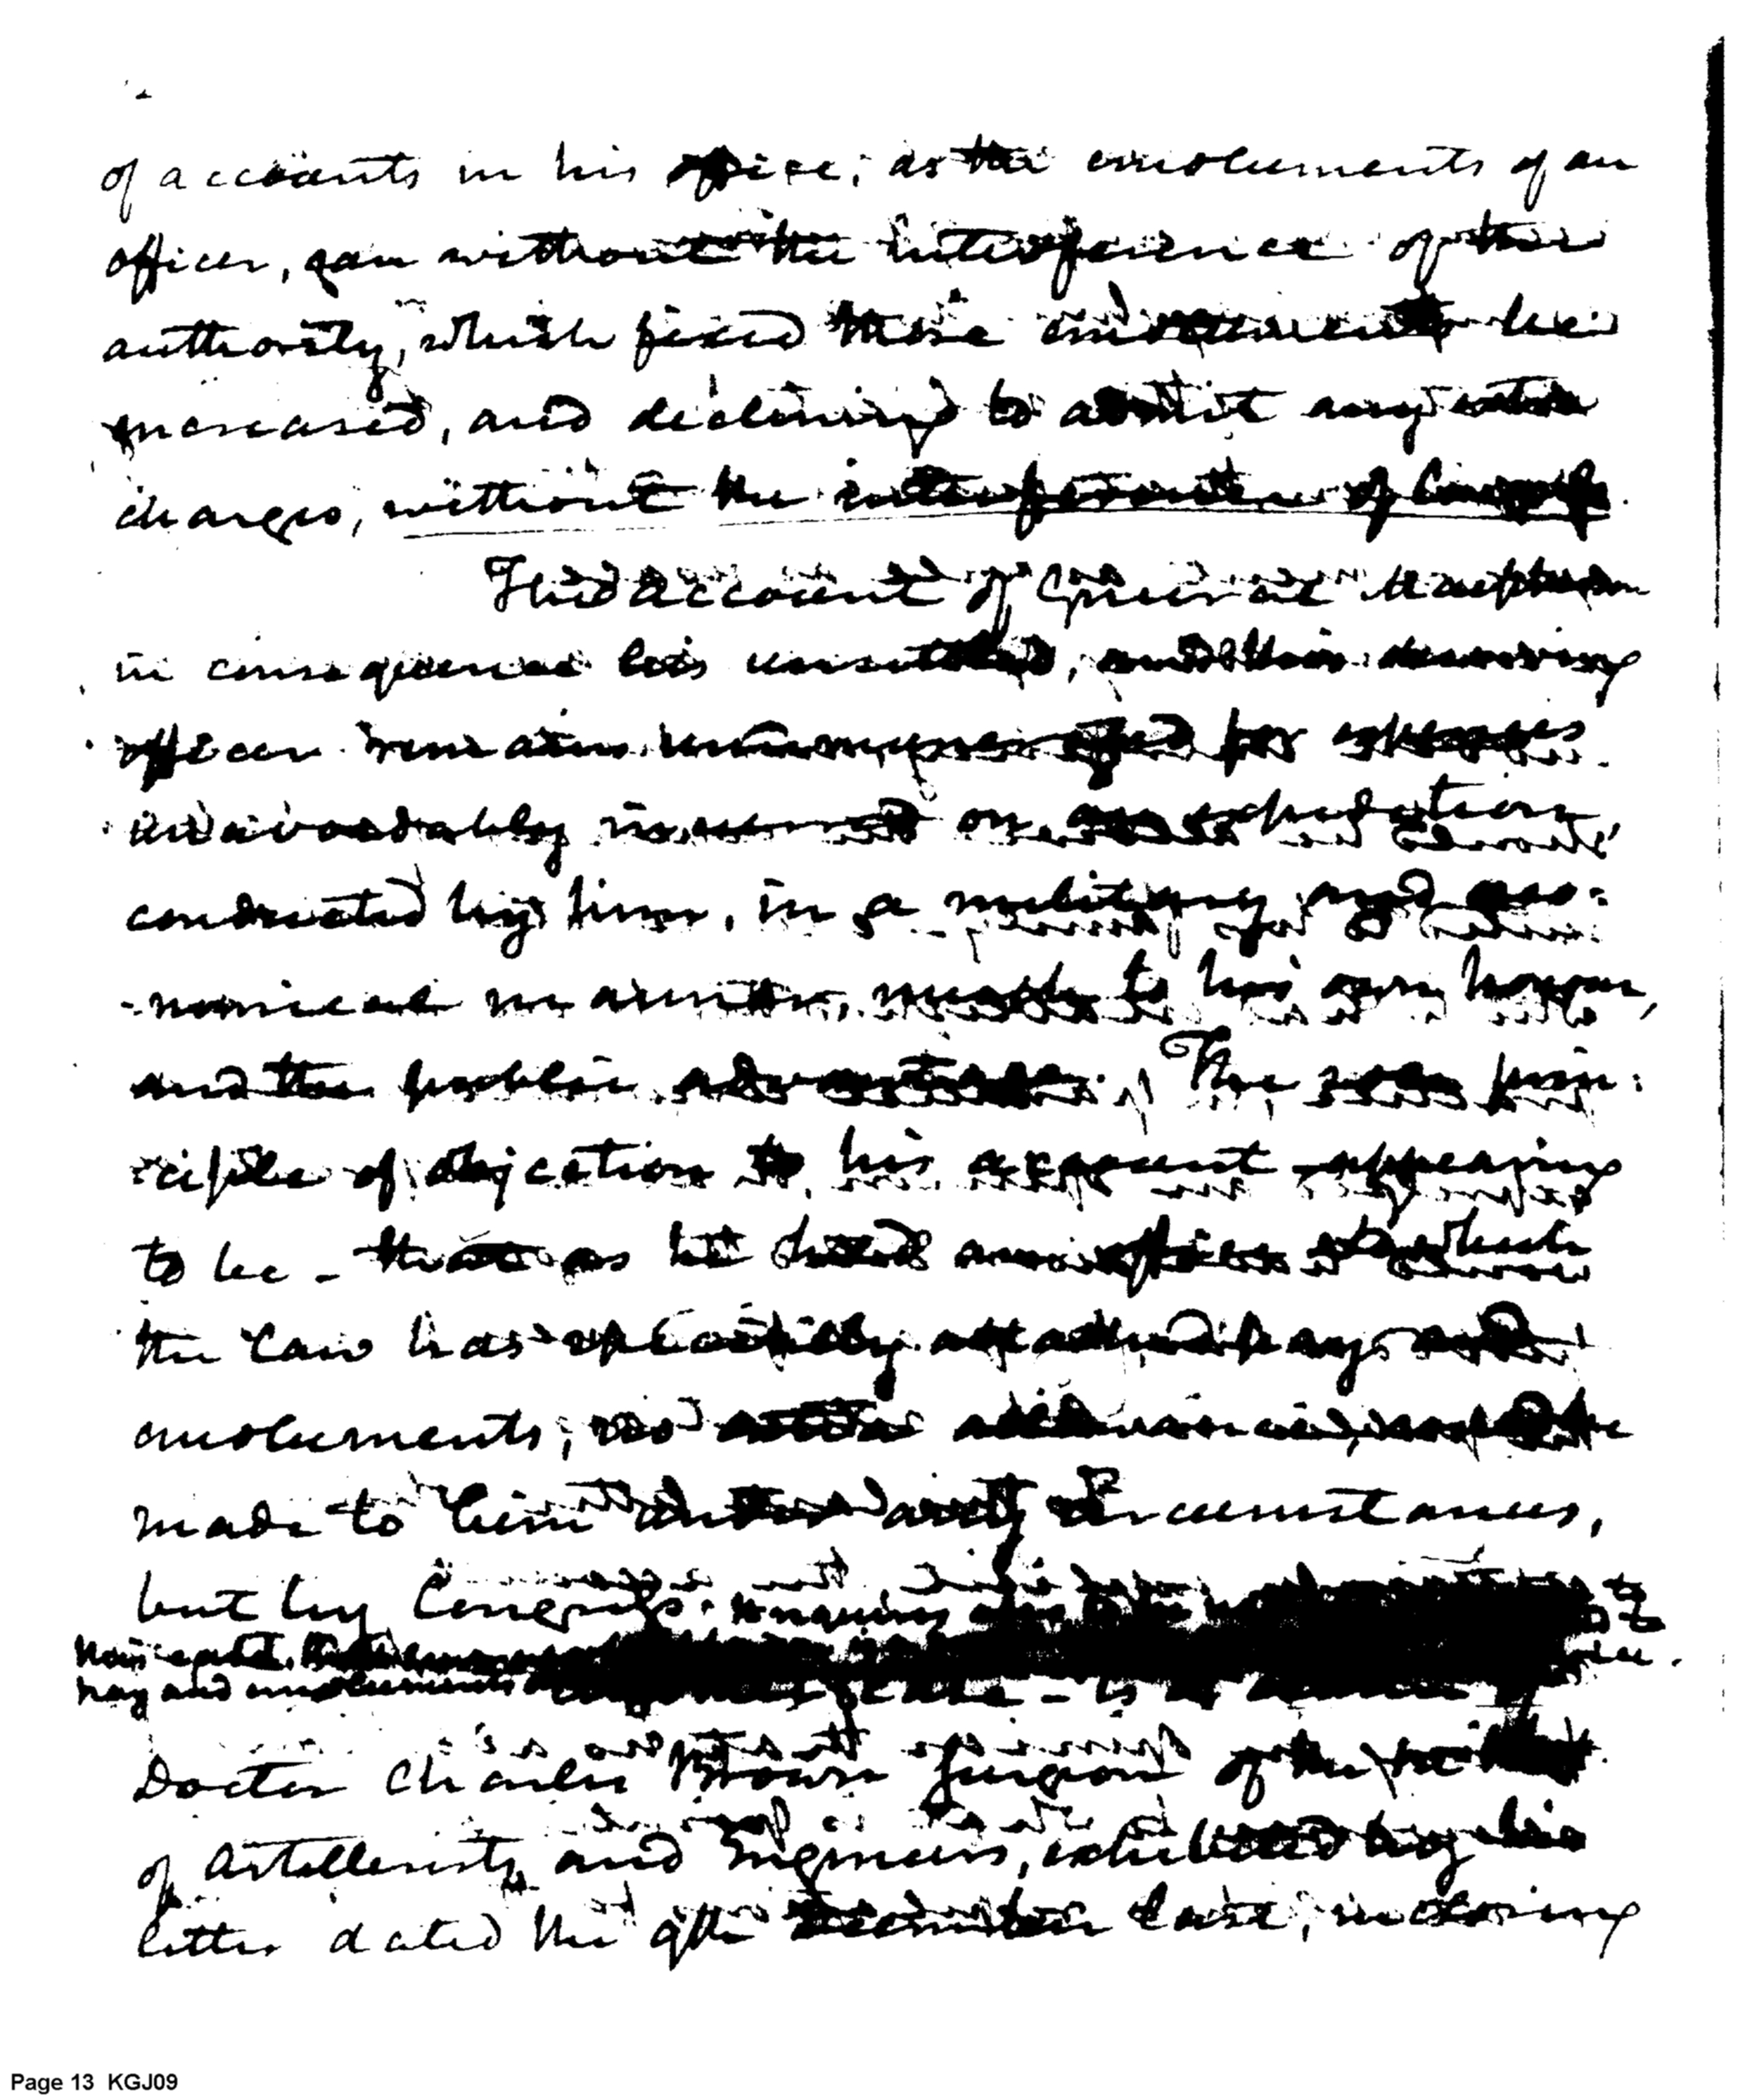 of accounts in his office; as the emoluments of an
officer, can without the interference of the
authority, which fixed those emoluments be
increased, and declining to admit any extra
charges, without the interference of Congress.
The account of General
in consequence lies unsettled, and this deserving
officer remains for expenses
unavoidably incurred on an expedition,
conducted by him, in a military and eco:
-nomical manner, to his own honor,
and the public advantage. The sole prin:
ciple of objection to his account appearing
to be - that as he held an office to which
the law has specially attached pay and
emoluments, no extra allowance, can be
made to him under any circumstances,
but by Congress. to
pay and emoluments
Doctor Charles Brown Surgeon of the
of Artillerists and Engineers, exhibited by his
letter dated the 9th December last, inclosing
Page 13 KGJ09